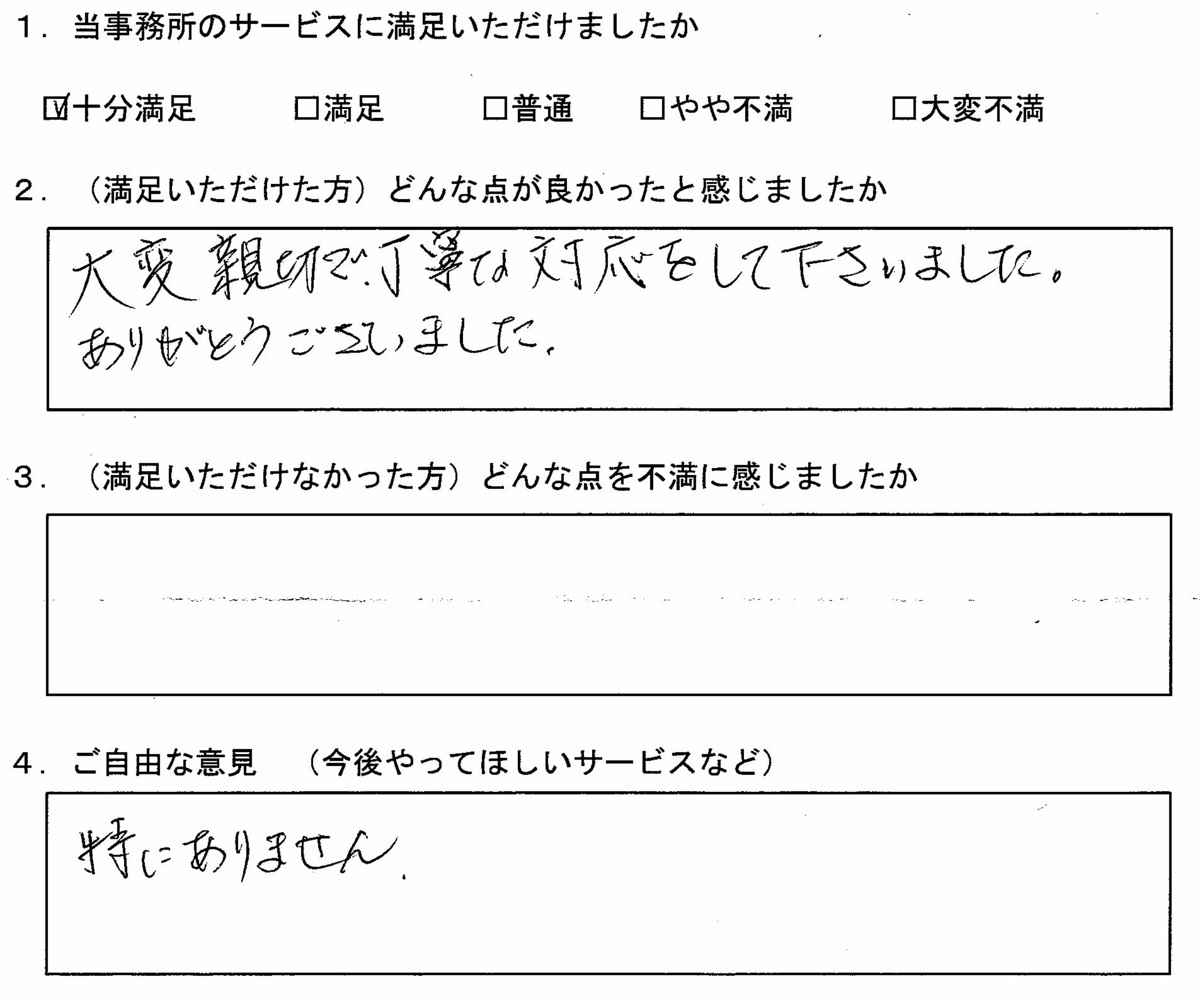 1．当事務所のサービスに満足いただけましたか
☑十分満足　□満足　□普通　□やや不満　□大変不満
2．（満足いただけた方）どんな点が良かったと感じましたか
大変親切で丁寧な対応をして下さいました。
ありがとうございました.
3．（満足いただけなかった方）どんな点を不満に感じましたか
4．ご自由な意見　（今後やってほしいサービスなど）
特にありません.